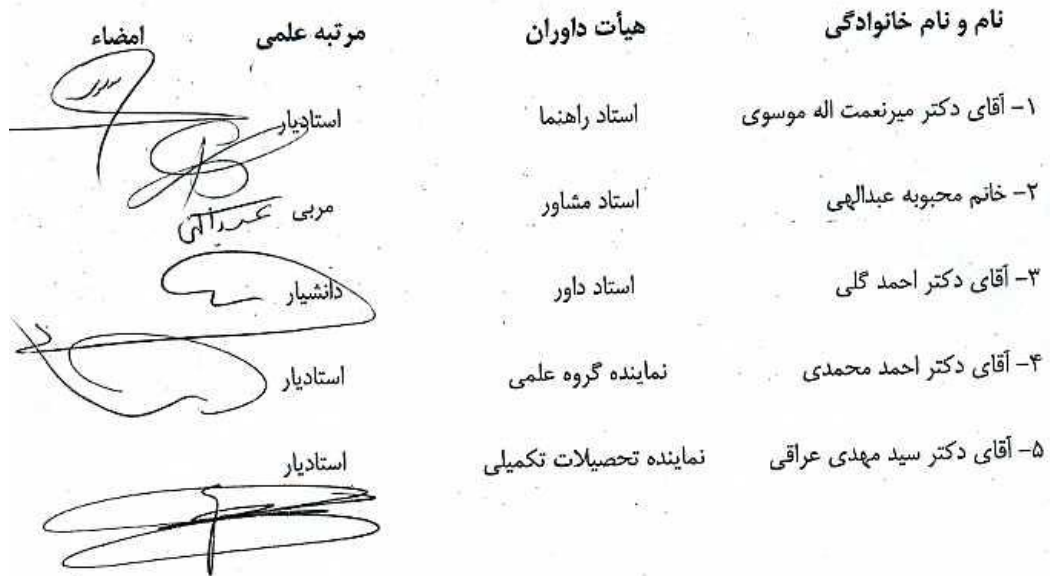 نام و نام خانوادگی هیأت داوران مرتبه علمی امضاء
۱- آقای دکتر میرنعمت اله موسوی استاد راهنما استادیار
۲- خانم محبوبه عبدالهی استاد مشاور مربی عبدالهی
۳- آقای دکتر احمد گلی استاد داور دانشیار
۴- آقای دکتر احمد محمدی نماینده گروه علمی استادیار
۵- آقای دکتر سید مهدی عراقی نماینده تحصیلات تکمیلی استادیار